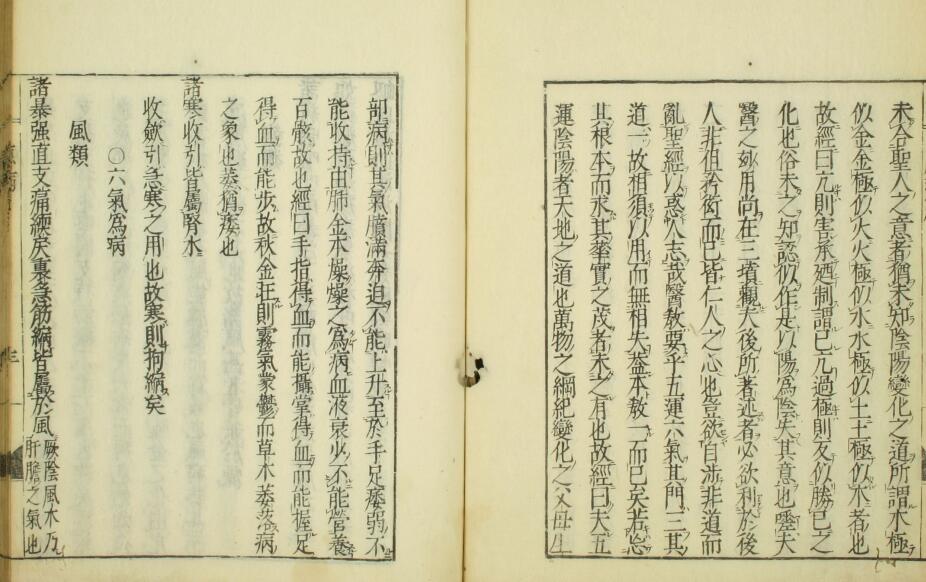 未合聖人之意者猶未知陰陽變化之道所謂木極
似金金極似火火極似水水極似土土極似木者也
故經曰亢則害承廼制謂已亢過極則反似勝已之
化也俗未之知認似作是以陽爲陰失其意也嗟夫
醫之妙用尚在三墳觀夫後所著述者必欲利於後
人非但矜衒而已皆仁人之心也豈欲自涉非道而
亂聖經以惑人志哉醫教要乎五運六氣其門三其
道一故相須以用而無相失蓋本教一而已矣若忘
其根本而求其華實之茂者未之有也故經曰夫五
運陰陽者天地之道也萬物之綱紀變化之父母生
部病則其氣膹滿奔迫不能上升至於手足痿弱不
能收持由肺金本燥燥之爲病血液衰少不能營養
百骸故也經曰手指得血而能攝掌得血而能握足
得血而能步故秋金旺則霧氣蒙鬱而草木萎落病
之象也萎猶痿也
諸寒收引皆屬腎水
收斂引急寒之用也故寒則拘縮矣
○六氣爲病
風類
諸暴强直支痛緛戾裏急筋縮皆屬於風厥陰風木乃
肝膽之氣也